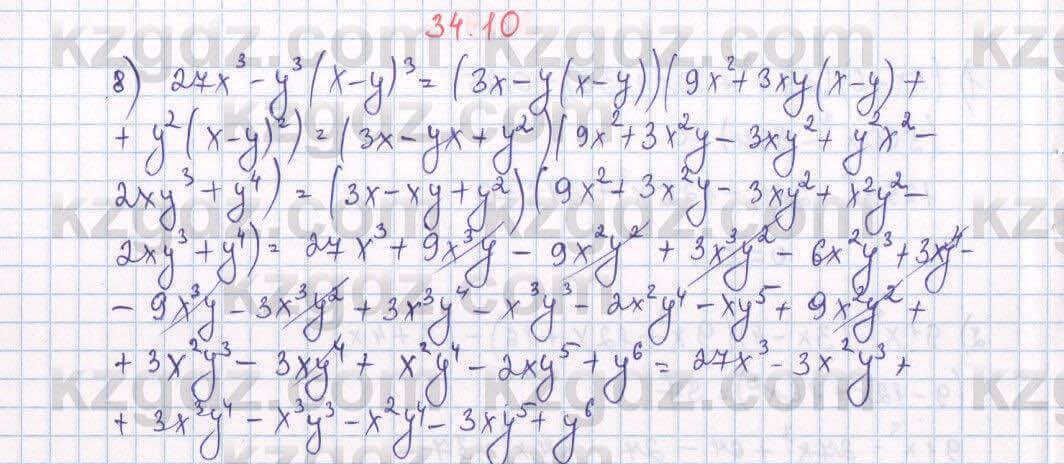 34.10
8) 27x³ - y³(x-y)³ = (3x - y(x-y))(9x² + 3xy(x-y) +
+ y²(x-y)²) = (3x - yx + y²)(9x² + 3x²y - 3xy² + y²x² -
2xy³ + y⁴) = (3x - xy + y²)(9x² + 3x²y - 3xy² + x²y² -
2xy³ + y⁴) = 27x³ + 9x³y - 9x²y² + 3x³y² - 6x²y³ + 3xy⁴ -
- 9x³y - 3x³y² + 3x³y⁴ - x³y³ - 2x²y⁴ - xy⁵ + 9x²y² +
+ 3x²y³ - 3xy⁴ + x²y⁴ - 2xy⁵ + y⁶ = 27x³ - 3x²y³ +
+ 3x³y⁴ - x³y³ - x²y⁴ - 3xy⁵ + y⁶
kzgdz.com